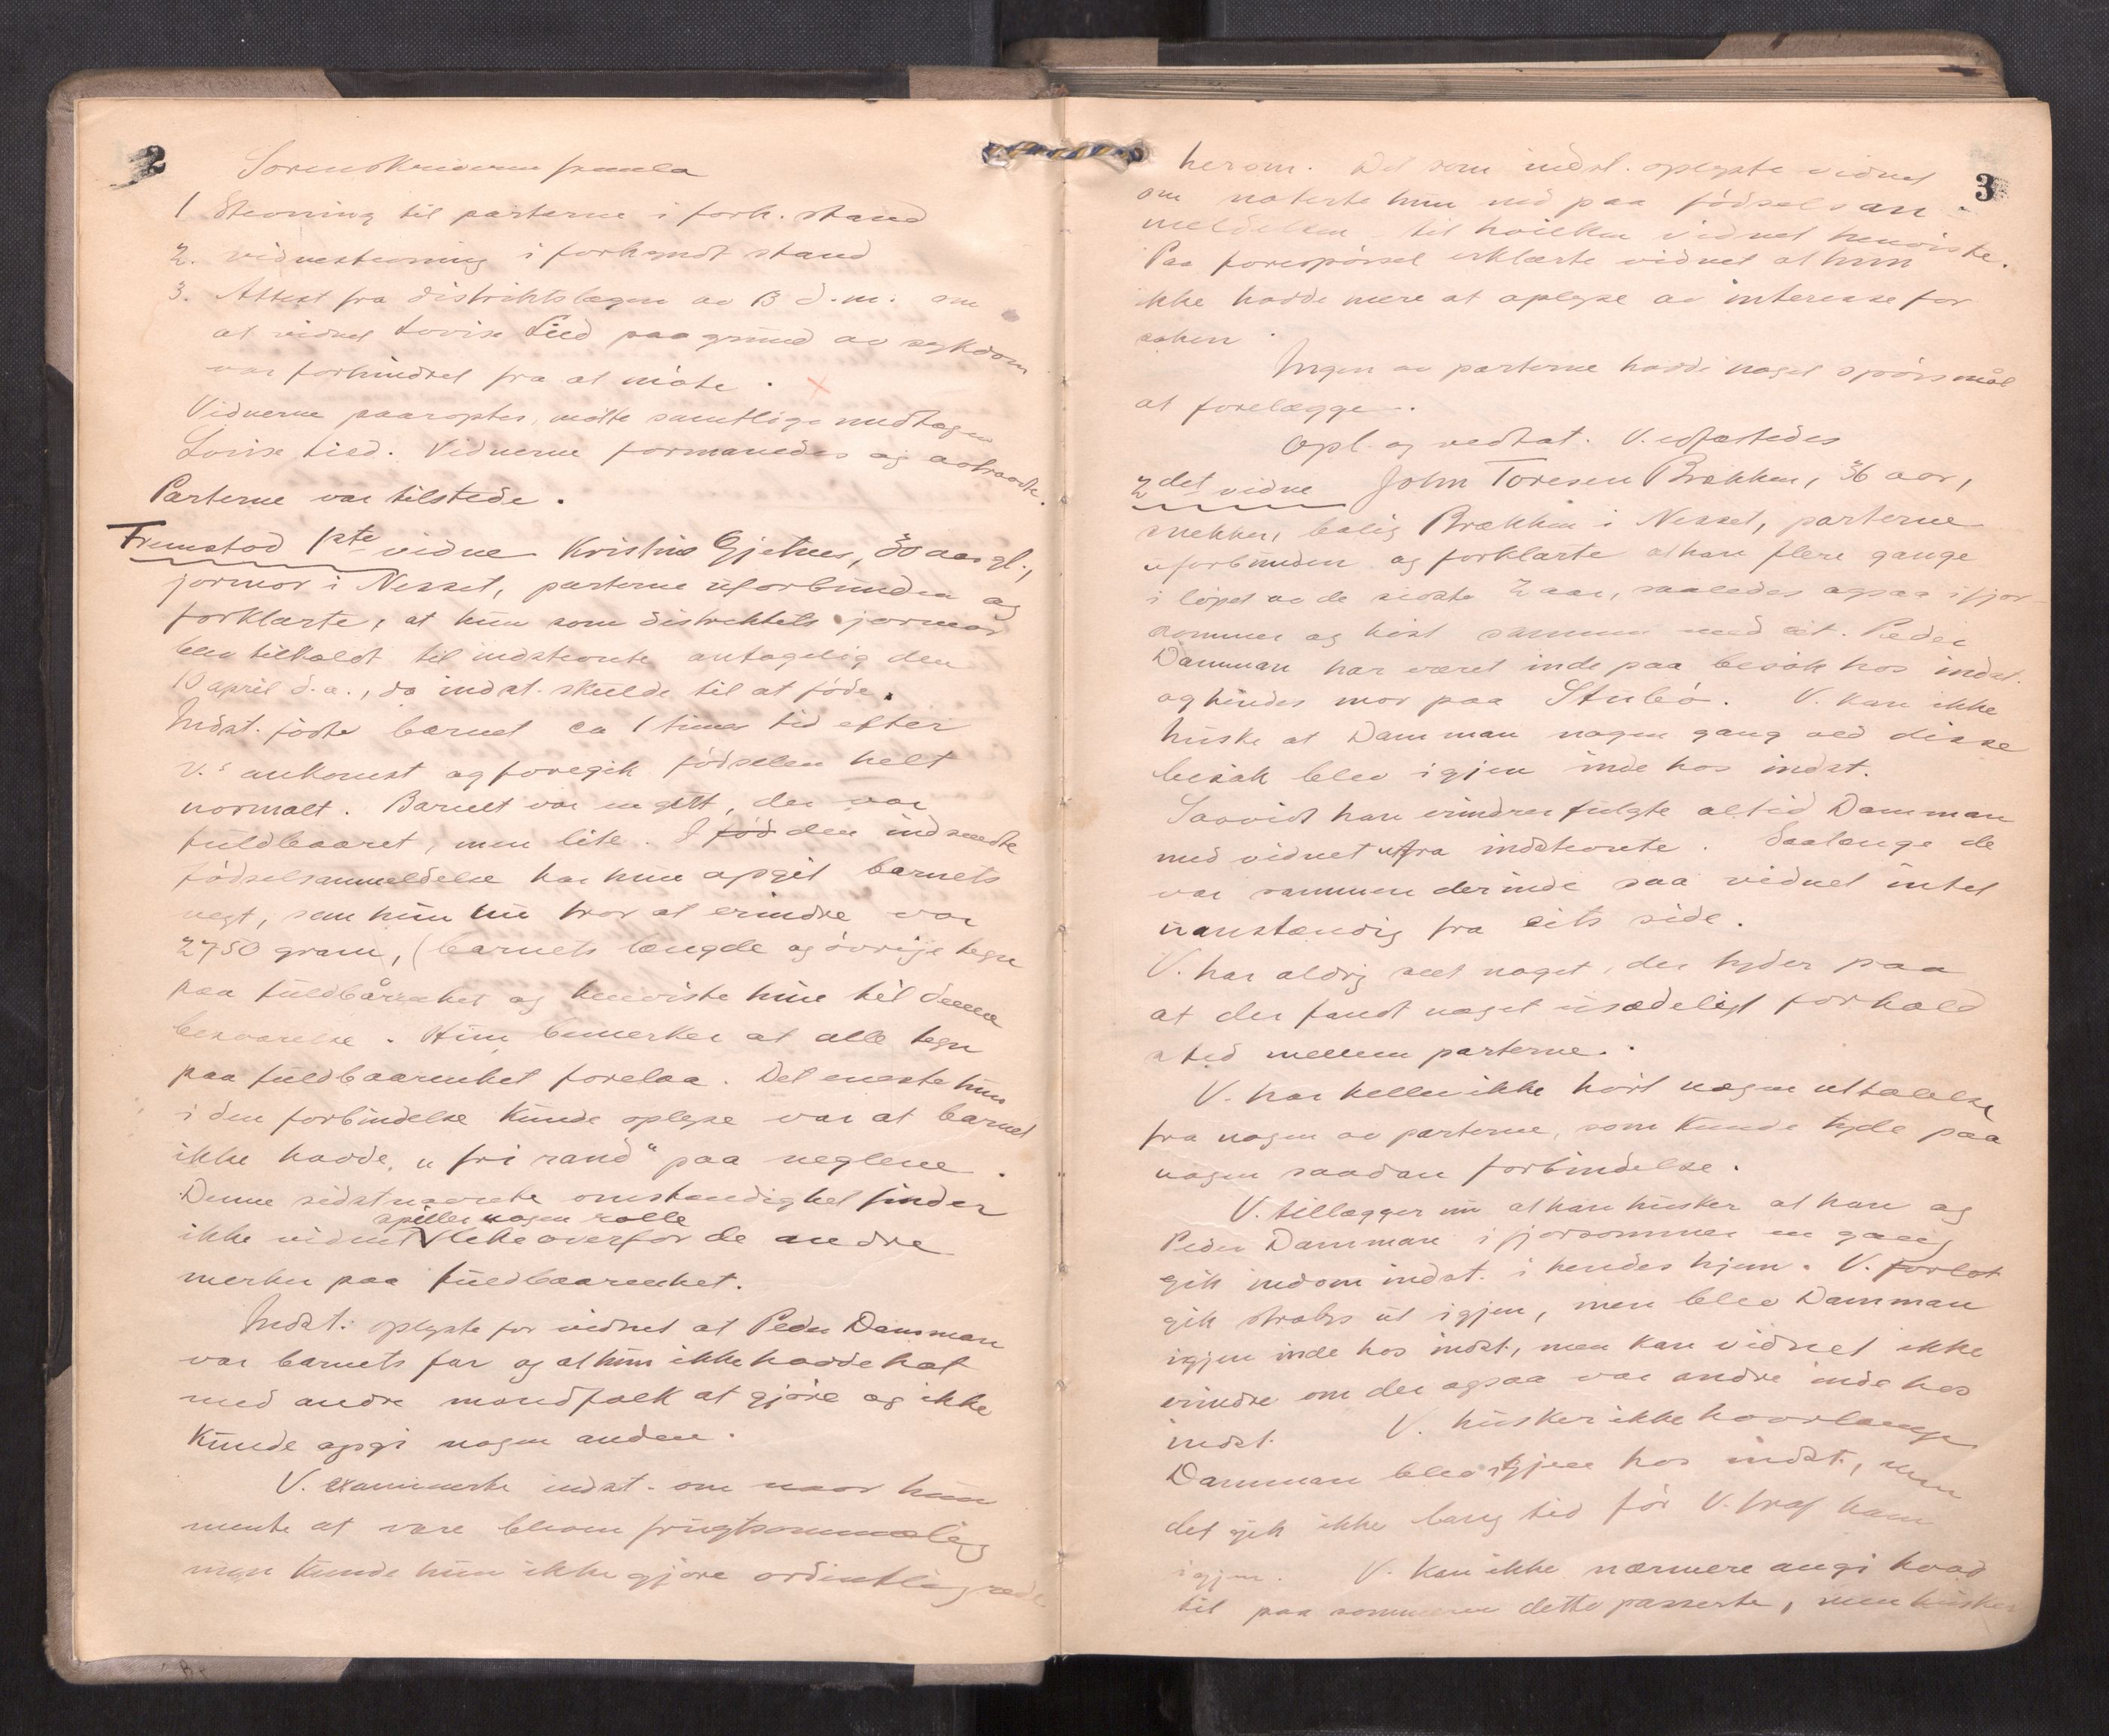 2
Sorenskriveren fremla
1 Stevning til parterne i fork. stand
2. vidnestevning i forkyndt stand
3. Attest fra distriktslægen av 13 d.m. om
at vidnet Lovise Lied paa grund av sykdom
var forhindret fra at møte.
Vidnerne paaroptes, møtte samtlige undtagen
Lovise Lied. Vidnerne formanedes og aotraadte.
Parterne var tilstede.
Fremstod 1ste vidne Kristine Gjelnes, 30 aar gl.,
jormor i Nesset, parterne uforbunden og
forklarte, at hun som distriktets jormor
blev tilkaldt til indstevnte antagelig den
10 april d.a., da indst. skulde til at føde.
Indst. fødte barnet ca 1 times tid efter
V.s ankomst og foregik fødselen helt
normalt. Barnet var en gut, der var
fuldbaaret, men lite. I fød den indsendte
fødselsanmeldelse har hun opgit barnets
vegt, som hun nu tror at erindre var
2750 gram, (barnets længde og øvrige tegn
paa fuldbårenhet og henviste hun til denne
besvarelse. Hun bemerker at alle tegn
paa fuldbaarenhet forelaa. Det eneste hun
i den forbindelse kunde oplyse var at barnet
ikke havde "fri rand" paa neglene.
Denne sidstnævnte omstændighet finder
spiller nogen rolle
ikke vidnet like overfor de andre
merker paa fuldbaarenhet.
Indst. oplyste for vidnet at Peder Damman
var barnets far og at hun ikke havde hat
med andre mandfolk at gjøre og ikke
kunde opgi nogen anden.
V. examinerte indst. om naar hun
mente at være bleven frugtsommelig
men kunde hun ikke gjøre ordentlig rede
3
herom. Det som indst. oplyste vidnet
om noterte hun ned paa fødselsan-
meldelsen til hvilken vidnet henviste.
Paa forespørsel erklærte vidnet at hun
ikke hadde mere at oplyse av interesse for
saken.
Ingen av parterne hadde noget spørsmål
at forelægge.
Opl. og vedtat. V. edfæstedes
2det vidne John Toresen Brækken, 36 aar,
snekker, bolig Brækken i Nesset, parterne
uforbunden og forklarte at han flere gange
i løpet av de sidste 2 aar, saaledes ogsaa ifjor-
sommer og høst sammen med cit. Peder
Damman har været inde paa besøk hos indst.
og hendes mor paa Stubø. V. kan ikke
huske at Damman nogen gang ved disse
besøk blev igjen inde hos indst.
Saavidt han erindrer fulgte altid Damman
med vidnet ut fra indstevnte. Saalænge de
var sammen derinde saa vidnet intet
uanstændig fra cits side.
V. har aldrig seet noget, der tyder paa
at der fandt noget usædeligt forhold
sted mellem parterne.
V. har heller ikke hørt nogen uttalelse
fra nogen av parterne, som kunde tyde paa
nogen saadan forbindelse.
V. tillægger nu at han husker at han og
Peder Damman i fjorsommer en gang
gik indom indst. i hendes hjem. V. forlot
gik straks ut igjen, men blev Damman
igjen inde hos indst., men kan vidnet ikke
erindre om der ogsaa var andre inde hos
indst. V. husker ikke hvorlænge
Damman blev igjen hos indst., men
det gik ikke lang tid før V. traf ham
igjen. V. kan ikke nærmere angi hvad
tid paa sommeren dette passerte, men husker